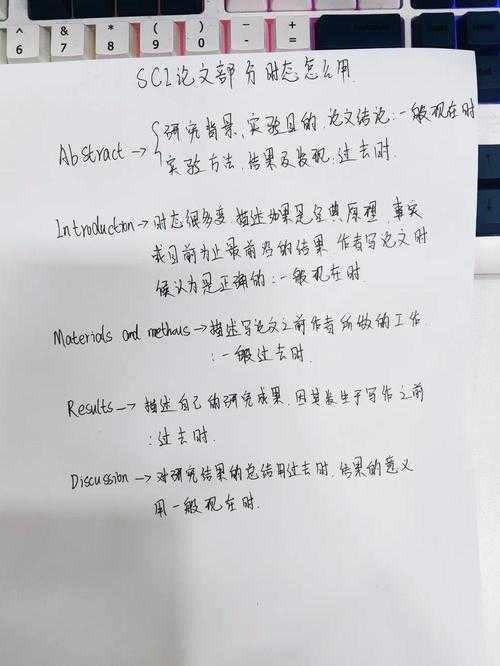 ^ 6
& 7
* 8
( 9
) 0
_ -
+ =
SCI论文部分时态怎么用.
Abstract→{研究背景、实验目的、论文结论:一般现在时
实验方法、结果及发现:过去时.
Introduction→时态很多变,描述如果是经典原理、事实
或目前为止最前沿的结果,作者写论文时
候认为是正确的:一般现在时.
Materials and methous→描述写论文之前作者所做的工作.
:一般过去时.
Results→描述自己的研究成果,因其发生于写作之前
:过去时.
Discussion→对研究结果的总结用过去时,结果的意义
用一般现在时.